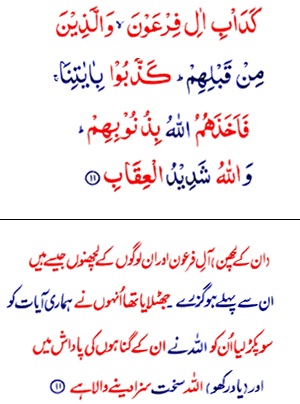 كَدَاْبِ اٰلِ فِرْعَوْنَ ۙ وَالَّذِيْنَ
مِنْ قَبْلِهِمْ ؕ كَذَّبُوْا بِاٰيٰتِنَا ۚ
فَاَخَذَهُمُ اللّٰهُ بِذُنُوْبِهِمْ ؕ
وَاللّٰهُ شَدِيْدُ الْعِقَابِ ﴿۱۱﴾
(ان کے لچھن) آلِ فرعون اور ان لوگوں کے لچھنوں جیسے ہیں
ان سے پہلے ہو گزرے۔ جھٹلایا تھا اُنہوں نے ہماری آیات کو
سو پکڑ لیا اُن کو اللہ نے ان کے گناہوں کی پاداش میں
اور (یاد رکھو) اللہ سخت سزا دینے والا ہے ﴿۱۱﴾